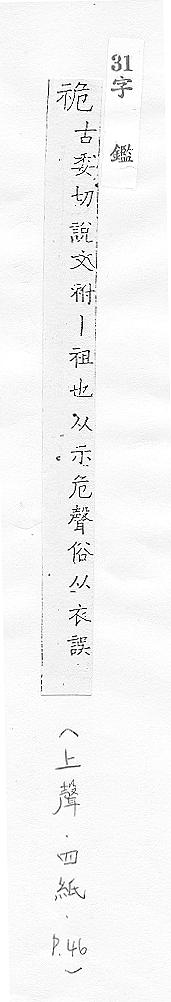 31字 鑑
祪古委切說文祔丨祖也从示危聲俗从衣誤
(上聲．四紙．P.46)